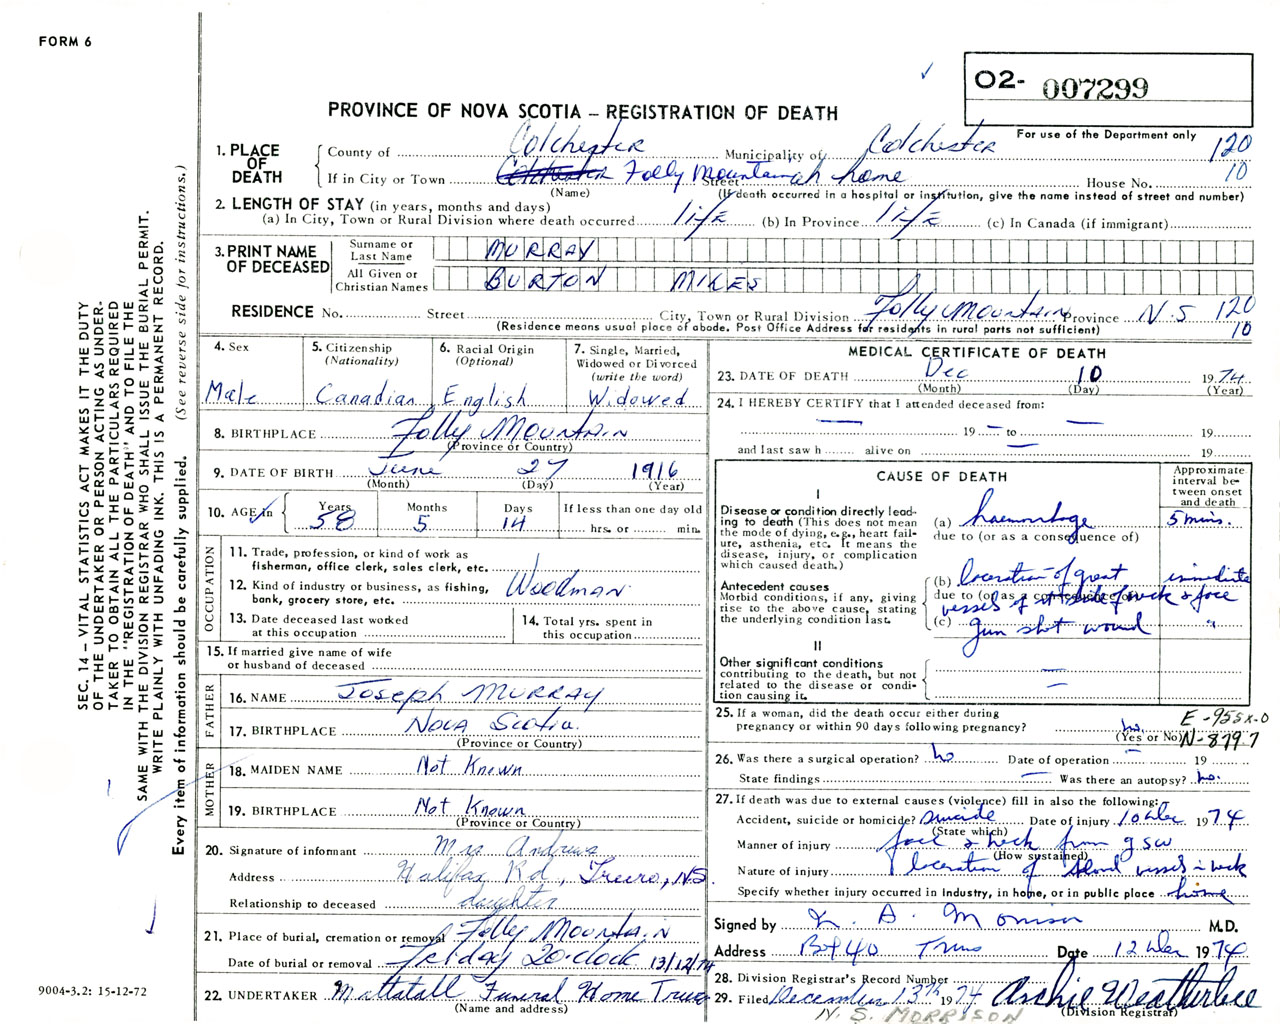 FORM 6
O2- 007299
PROVINCE OF NOVA SCOTIA – REGISTRATION OF DEATH
For use of the Department only
1. PLACE OF DEATH
County of Colchester Municipality of Colchester 120
If in City or Town Colchester Folly Mountain Street at home House No. 10
(Name) (If death occurred in a hospital or institution, give the name instead of street and number)
2. LENGTH OF STAY (in years, months and days)
(a) In City, Town or Rural Division where death occurred life (b) In Province life (c) In Canada (if immigrant)
3. PRINT NAME OF DECEASED
Surname or Last Name MURRAY
All Given or Christian Names BURTON MILES
RESIDENCE No. Street City, Town or Rural Division Folly Mountain Province N.S 120
(Residence means usual place of abode. Post Office Address for residents in rural parts not sufficient) 10
4. Sex Male
5. Citizenship (Nationality) Canadian
6. Racial Origin (Optional) English
7. Single, Married, Widowed or Divorced (write the word) Widowed
8. BIRTHPLACE Folly Mountain
(Province or Country)
9. DATE OF BIRTH June 27 1916
(Month) (Day) (Year)
10. AGE in Years 58 Months 5 Days 14 If less than one day old hrs. or min.
OCCUPATION
11. Trade, profession, or kind of work as fisherman, office clerk, sales clerk, etc.
12. Kind of industry or business, as fishing, bank, grocery store, etc. Woodman
13. Date deceased last worked at this occupation
14. Total yrs. spent in this occupation
15. If married give name of wife or husband of deceased
FATHER
16. NAME Joseph MURRAY
17. BIRTHPLACE Nova Scotia
(Province or Country)
MOTHER
18. MAIDEN NAME Not Known
19. BIRTHPLACE Not Known
(Province or Country)
20. Signature of informant Mrs Andrews
Address Halifax Rd., Truro, N.S.
Relationship to deceased daughter
21. Place of burial, cremation or removal Folly Mountain
Date of burial or removal Friday 2 O'clock 13/12/74
22. UNDERTAKER Mattatall Funeral Home Truro
(Name and address)
MEDICAL CERTIFICATE OF DEATH
23. DATE OF DEATH Dec 10 1974
(Month) (Day) (Year)
24. I HEREBY CERTIFY that I attended deceased from:
19 – to 19
and last saw h alive on 19
CAUSE OF DEATH
Approximate interval between onset and death
I
Disease or condition directly leading to death (This does not mean the mode of dying, e.g., heart failure, asthenia, etc. It means the disease, injury, or complication which caused death.)
(a) haemorrhage 5 mins.
due to (or as a consequence of)
Antecedent causes
Morbid conditions, if any, giving rise to the above cause, stating the underlying condition last.
(b) laceration of great immediate
due to (or as a consequence of)
vessels of neck & face
(c) gun shot wound "
II
Other significant conditions contributing to the death, but not related to the disease or condition causing it.
25. If a woman, did the death occur either during pregnancy or within 90 days following pregnancy? no
(Yes or No)
E-955X-0
N-879.7
26. Was there a surgical operation? no Date of operation 19
State findings Was there an autopsy? no.
27. If death was due to external causes (violence) fill in also the following:
Accident, suicide or homicide? suicide Date of injury 10 Dec 1974
(State which)
Manner of injury face & neck from gsw
(How sustained)
Nature of injury laceration of blood vessels in neck
Specify whether injury occurred in industry, in home, or in public place home
Signed by M.D.
Address Box 40 Truro Date 12 Dec 1974
28. Division Registrar's Record Number
29. Filed December 13th 1974 Archie Weatherbee
(Division Registrar)
N. S. MORRISON
SEC. 14 – VITAL STATISTICS ACT MAKES IT THE DUTY
OF THE UNDERTAKER OR PERSON ACTING AS UNDER-
TAKER TO OBTAIN ALL THE PARTICULARS REQUIRED
IN THE "REGISTRATION OF DEATH" AND TO FILE THE
SAME WITH THE DIVISION REGISTRAR WHO SHALL ISSUE THE BURIAL PERMIT.
WRITE PLAINLY WITH UNFADING INK. THIS IS A PERMANENT RECORD.
Every item of information should be carefully supplied. (See reverse side for instructions.)
9004-3.2: 15-12-72